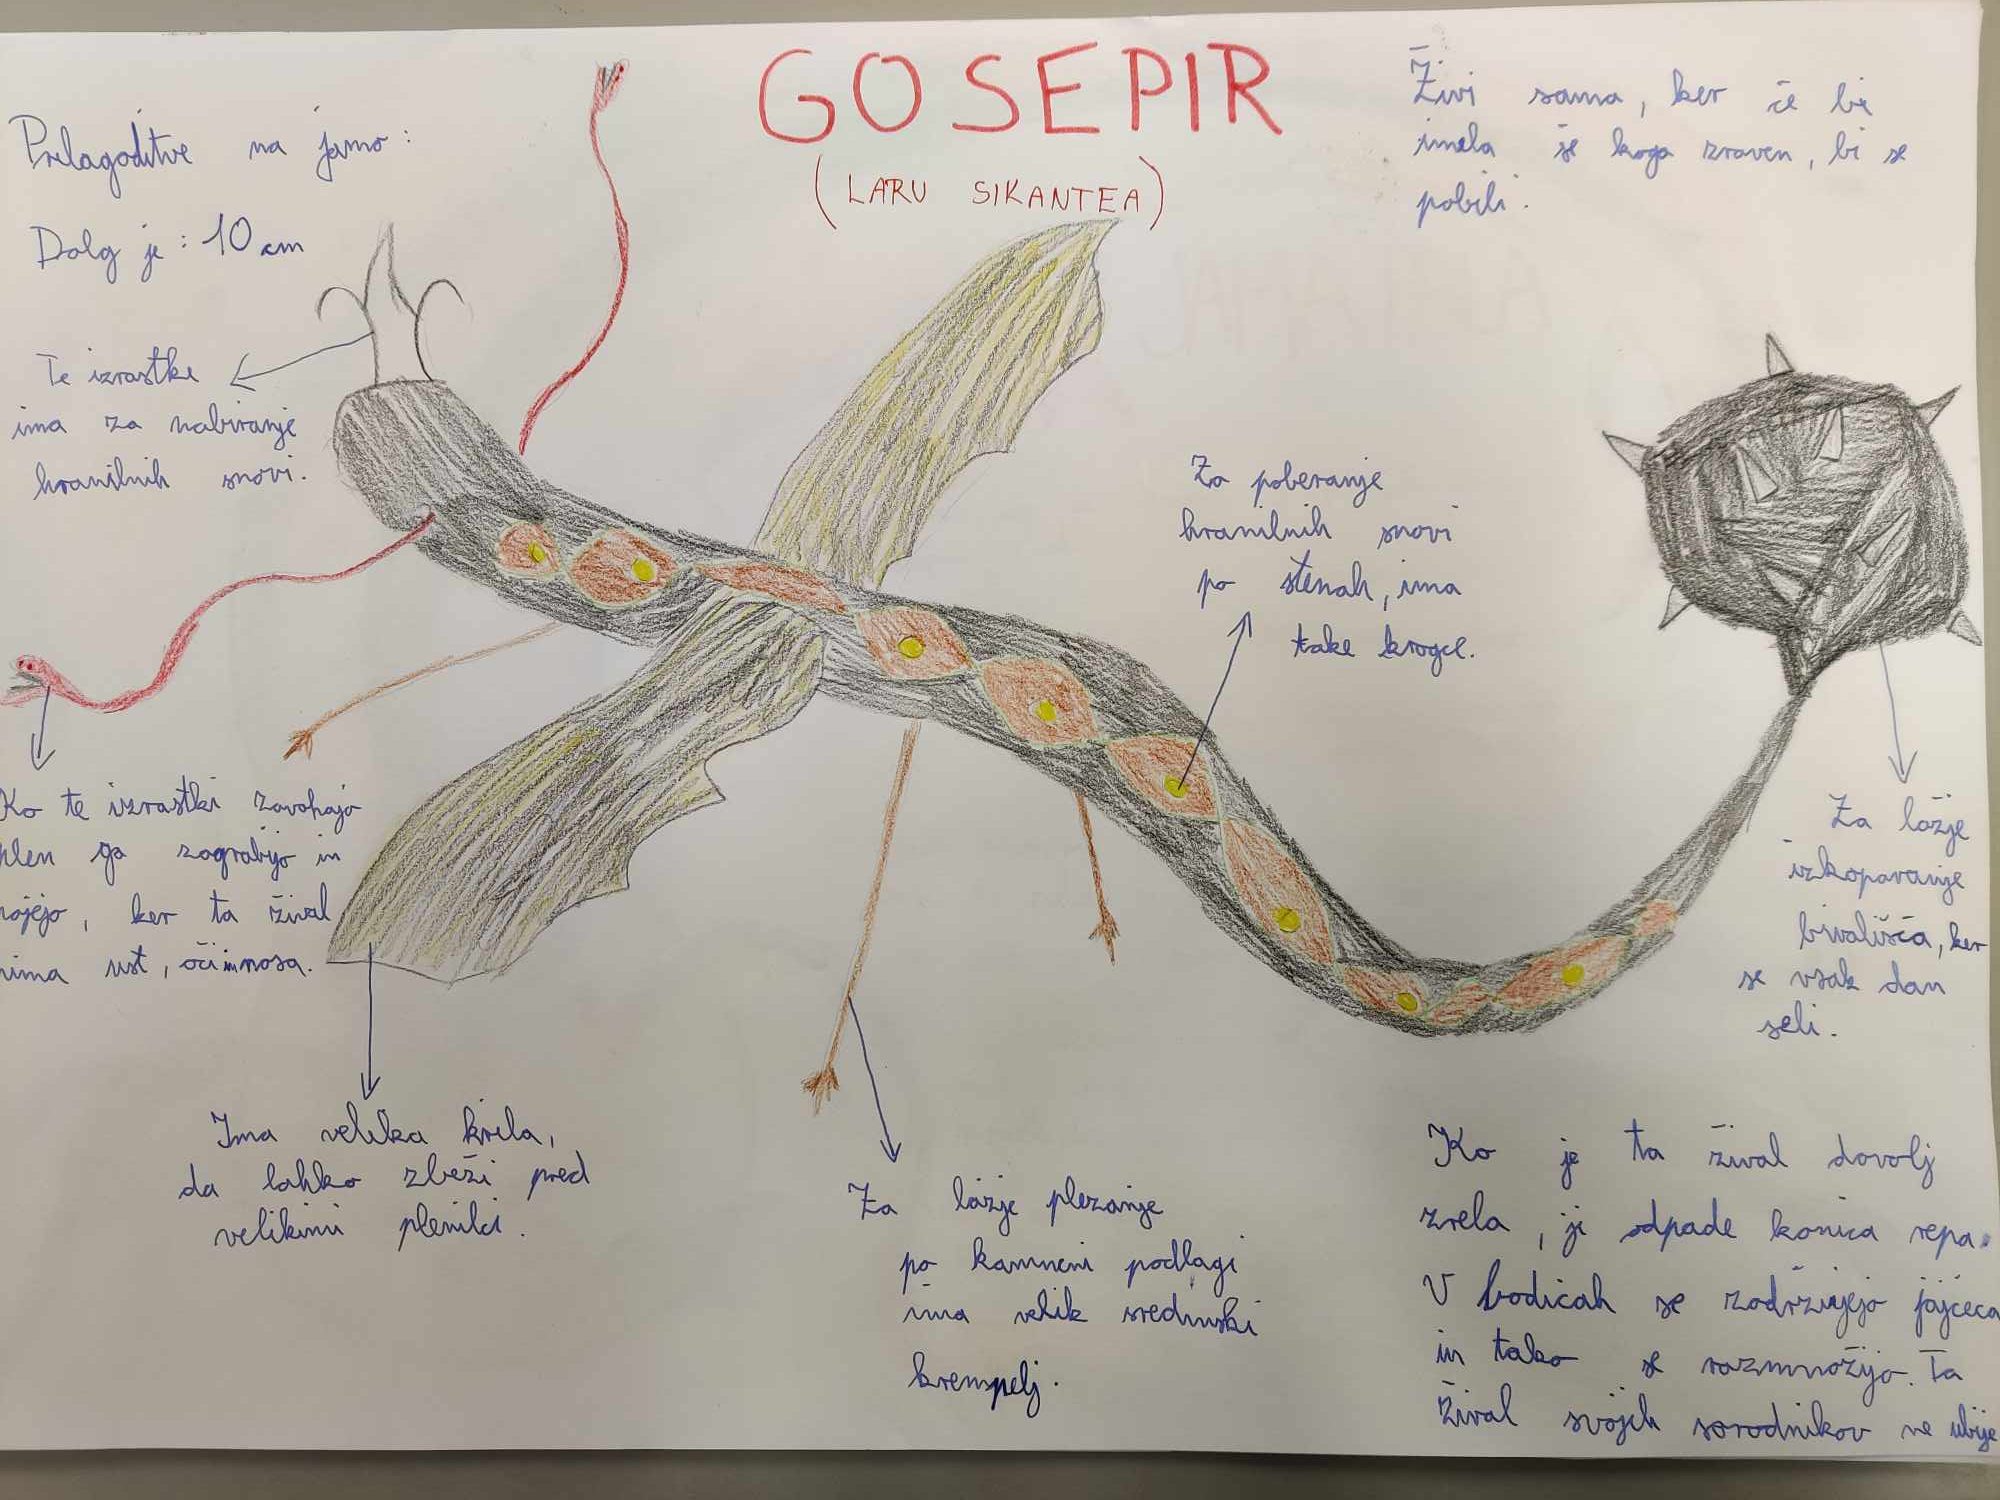 GOSEPIR
(LARU SIKANTEA)
Prilagoditve na jamo:
Dolg je: 10 cm
Te izrastke
ima za nabiranje
hranilnih snovi.
Ko te izrastki zavohajo
plen ga zagrabijo in
, ker ta žival
nima ust, oči in nosa.
Ima velika krila,
da lahko zbeži pred
velikimi plenilci.
Za lažje plezanje
po kamneni podlagi
ima velik sredinski
krempelj.
Za poberanje
hranilnih snovi
po stenah, ima
take krogce.
Živi sama, ker če bi
imela še koga zraven, bi se
pobili.
Za lažje
izkopavanje
bivališča, ker
se vsak dan
seli.
Ko je ta žival dovolj
zrela, ji odpade konica repa.
V bodicah se zadržujejo jajčeca
in tako se razmnožijo. Ta
žival svojih sorodnikov ne ubije